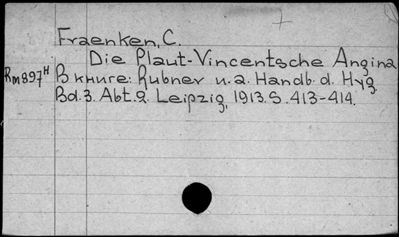 Fraenken, C.
Die Plaut-Vincentsche Angina
Rm897н В книге: Rubner u. a. Handb. d. Hyg.
Bd. 3. Abt. 2. Leipzig, 1913. S. 413-414.